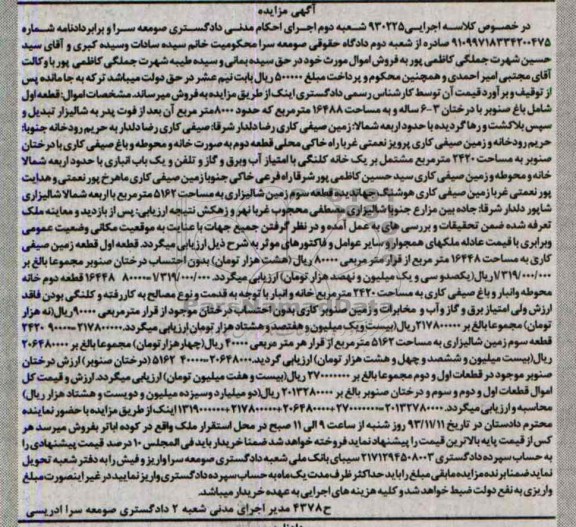 آگهی مزایده
در خصوص کلاسه اجرایی ۹۳۰۲۲۵ شعبه دوم اجرای احکام مدنی دادگستری صومعه سرا و برابر دادنامه شماره
۹۱۰۹۹۷۱۸۳۳۴۲۰۰۴۷۵ صادره از شعبه دوم دادگاه حقوقی صومعه سرا محکومیت خانم سیده سادات وسیده کبری و آقای سید
حسین شهرت جملگی کاظمی پور به فروش اموال مورث خود در حق سیده یمانی و سیده طیبه شهرت جملگی کاظمی پور با وکالت
آقای مجتبی امیر احمدی و همچنین محکوم و پرداخت مبلغ ۵۰۰۰۰۰ ریال بابت نیم عشر در حق دولت میباشد ترکه به جا مانده پس
از توقیف و برآورد قیمت آن توسط کارشناس رسمی دادگستری اینک از طریق مزایده به فروش میرساند. مشخصات اموال: قطعه اول
شامل باغ صنوبر با درختان ۳-۶ ساله و به مساحت ۱۶۴۸۸ مترمربع که حدود ۸۰۰۰ متر مربع آن بعد از فوت پدر به شالیزار تبدیل و
سپس بلاکشت و رها گردیده با حدود اربعه شمالا: زمین صیفی کاری رضا دلدار شرقا: صیفی کاری رضا دلدار به حریم رودخانه جنوبا:
حریم رودخانه و زمین صیفی کاری پرویز نعمتی غربا راه خاکی محلی قطعه دوم به صورت خانه و محوطه و باغ صیفی کاری با درختان
صنوبر به مساحت ۲۴۲۰ مترمربع مشتمل بر یک خانه کلنگی با امتیاز آب وبرق و گاز و تلفن و یک باب انباری با حدود اربعه شمالا
خانه و محوطه و زمین صیفی کاری سید حسین کاظمی پور شرقا راه فرعی خاکی جنوبا زمین صیفی کاری ماهرخ پور نعمتی و هدایت
پور نعمتی غربا زمین صیفی کاری هوشنگ جهاندیده قطعه سوم زمین شالیزاری به مساحت ۵۱۶۲ مترمربع با اربعه شمالا شالیزاری
شاپور دلدار شرقا: جاده بین مزارع جنوبا شالیزاری مصطفی محجوب غربا نهر و زهکش نتیجه ارزیابی: پس از بازدید و معاینه ملک
تعرفه شده ضمن تحقیقات و بررسی های به عمل آمده و در نظر گرفتن جمیع جهات با عنایت به موقعیت مکانی وضعیت عمومی
وبرابری با قیمت عادله ملکهای همجوار و سایر عوامل و فاکتورهای موثر به شرح ذیل ارزیابی میگردد. قطعه اول قطعه زمین صیفی
کاری به مساحت ۱۶۴۴۸ متر مربع از قرار متر مربعی ۸۰۰۰۰ ریال (هشت هزار تومان) بدون احتساب درختان صنوبر مجموعا بالغ بر
۱/۳۱۹/۰۰۰/۰۰۰ ریال(یکصدو سی و یک میلیون و نهصد هزار تومان) ارزیابی میگردد. ۱/۳۱۹/۰۰۰/۰۰۰=۸۰۰۰۰ ۱۶۴۴۸ قطعه دوم خانه
محوطه وانبار و باغ صیفی کاری به مساحت ۲۴۲۰ مترمربع خانه و انبار با توجه به قدمت و نوع مصالح به کار رفته و کلنگی بودن فاقد
ارزش ولی امتیاز برق و گاز و آب و مخابرات و زمین صنوبر کاری بدون احتساب درختان موجود از قرار متر مربعی ۹۰۰۰۰ ریال(نه هزار
تومان) مجموعا بالغ بر ۲۱۷۸۰۰۰۰۰ ریال(بیست ویک میلیون و هفتصد و هشتاد هزار تومان ارزیابی میگردد.۲۱۷۸۰۰۰۰۰=۹۰۰۰۰ ۲۴۲۰
قطعه سوم زمین شالیزاری به مساحت ۵۱۶۲ متر مربع از قرار هر متر مربعی ۴۰۰۰۰ ریال(چهار هزار تومان) مجموعا بالغ بر ۲۰۶۴۸۰۰۰۰
ریال(بیست میلیون و ششصد و چهل و هشت هزار تومان) ارزیابی گردید.۲۰۶۴۸۰۰۰۰=۴۰۰۰۰ ۵۱۶۲ (درختان صنوبر) ارزش درختان
صنوبر موجود در قطعات اول و دوم مجموعا بالغ بر ۲۷۰۰۰۰۰۰۰ ریال(بیست و هفت میلیون تومان) ارزیابی میگردد ارزش و قیمت کل
اموال قطعات اول و دوم و سوم و درختان صنوبر بالغ بر ۲۰۱۳۲۸۰۰۰۰ ریال(دو میلیارد وسیزده میلیون و دویست و هشتاد هزار ریال)
محاسبه و ارزیابی میگردد. ۲۰۱۳۲۷۸۰۰۰۰=۲۷۰۰۰۰۰۰۰+۲۰۶۴۸۰۰۰۰+۲۱۷۸۰۰۰۰۰+۱۳۱۹۰۰۰۰۰۰ اینک از طریق مزایده با حضور نماینده
محترم دادستان در تاریخ ۹۳/۱۱/۱۱ روز شنبه از ساعت ۹ الی ۱۱ صبح در محل استقرار ملک واقع در کوده اباتر بفروش میرسد هر
کس از قیمت پایه بالاترین قیمت را پیشنهاد نماید فروخته خواهد شد ضمنا خریدار باید فی المجلس ۱۰ درصد قیمت پیشنهادی را
به حساب سپرده دادگستری ۲۱۷۱۲۹۴۵۰۸۰۰۳ سیبای بانک ملی شعبه دادگستری صومعه سرا واریز و فیش را به دفتر شعبه تحویل
نماید ضمنا برنده مزایده مابقی مبلغ را باید حداکثر ظرف مدت یک ماه به حساب سپرده دادگستری واریز نمایید در غیر اینصورت مبلغ
واریزی به نفع دولت ضبط خواهد شد و کلیه هزینه های اجرایی به عهده خریدار میباشد.
ح۴۳۷۸ مدیر اجرای مدنی شعبه ۲ دادگستری صومعه سرا ادریسی